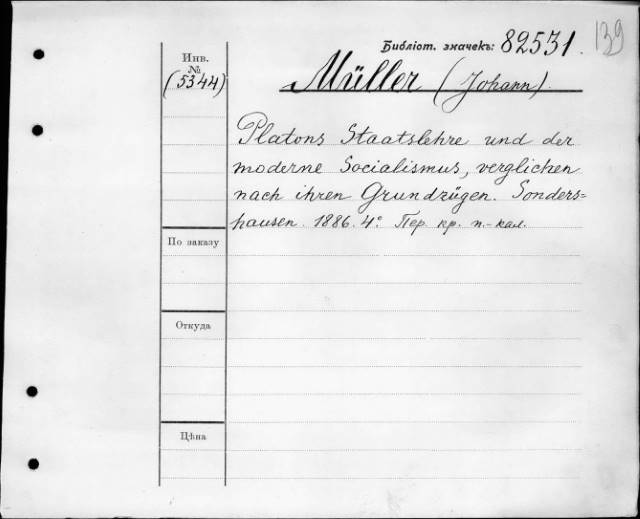 Библіот. значекъ: 82531. 139
Инв.
№
(5344)
Müller (Johann).
Platons Staatslehre und der
moderne Socialismus, verglichen
nach ihren Grundzügen. Sonders=
hausen. 1886. 4º. Пер. кр. п.-кал.
По заказу
Откуда
Цѣна